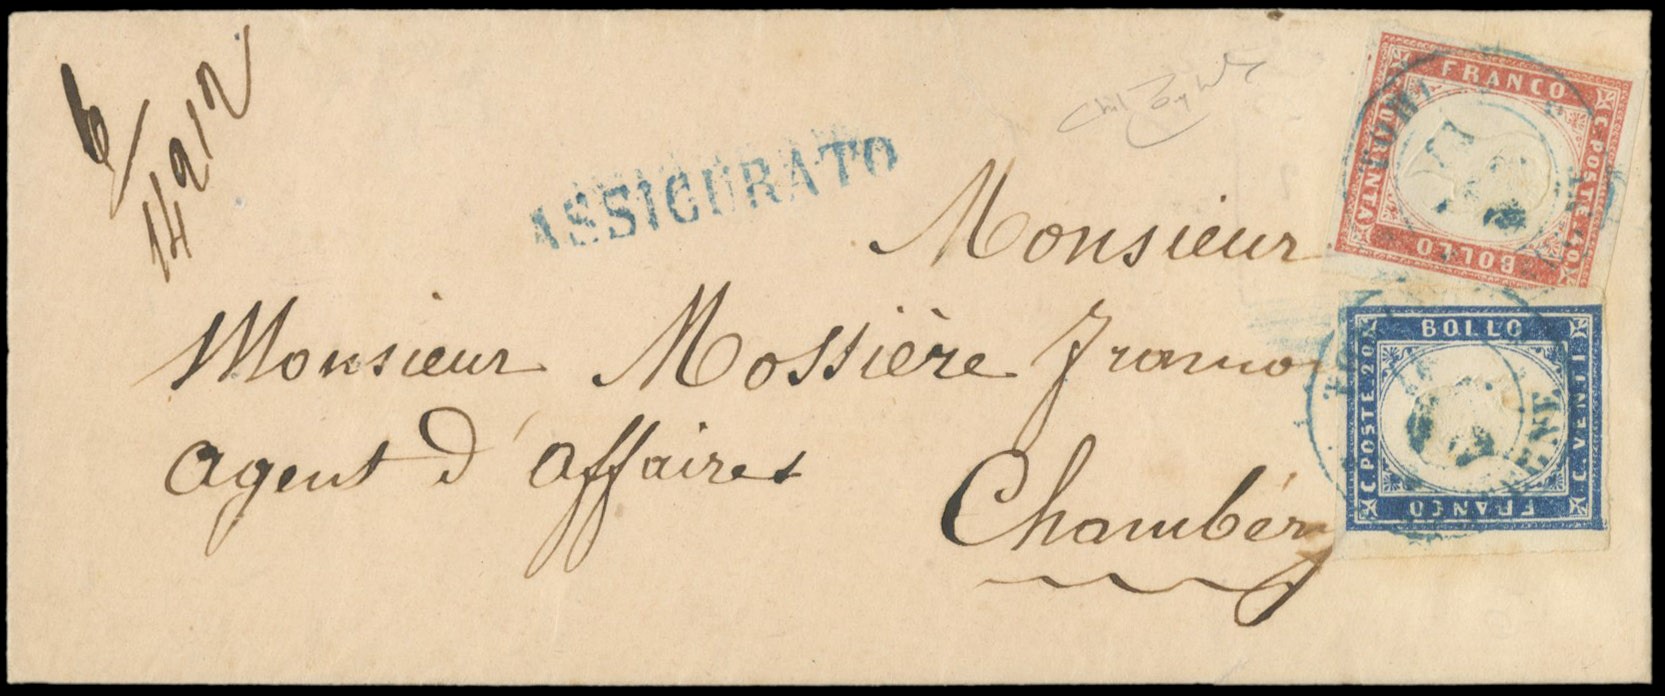 6
14912
ASSICURATO
Monsieur
Monsieur Mossière
agent d'affaires
Chambéry
FRANCO
C. POSTE 40
BOLLO
QUARANTA
BOLLO
C. POSTE 20
C. VENTI
FRANCO